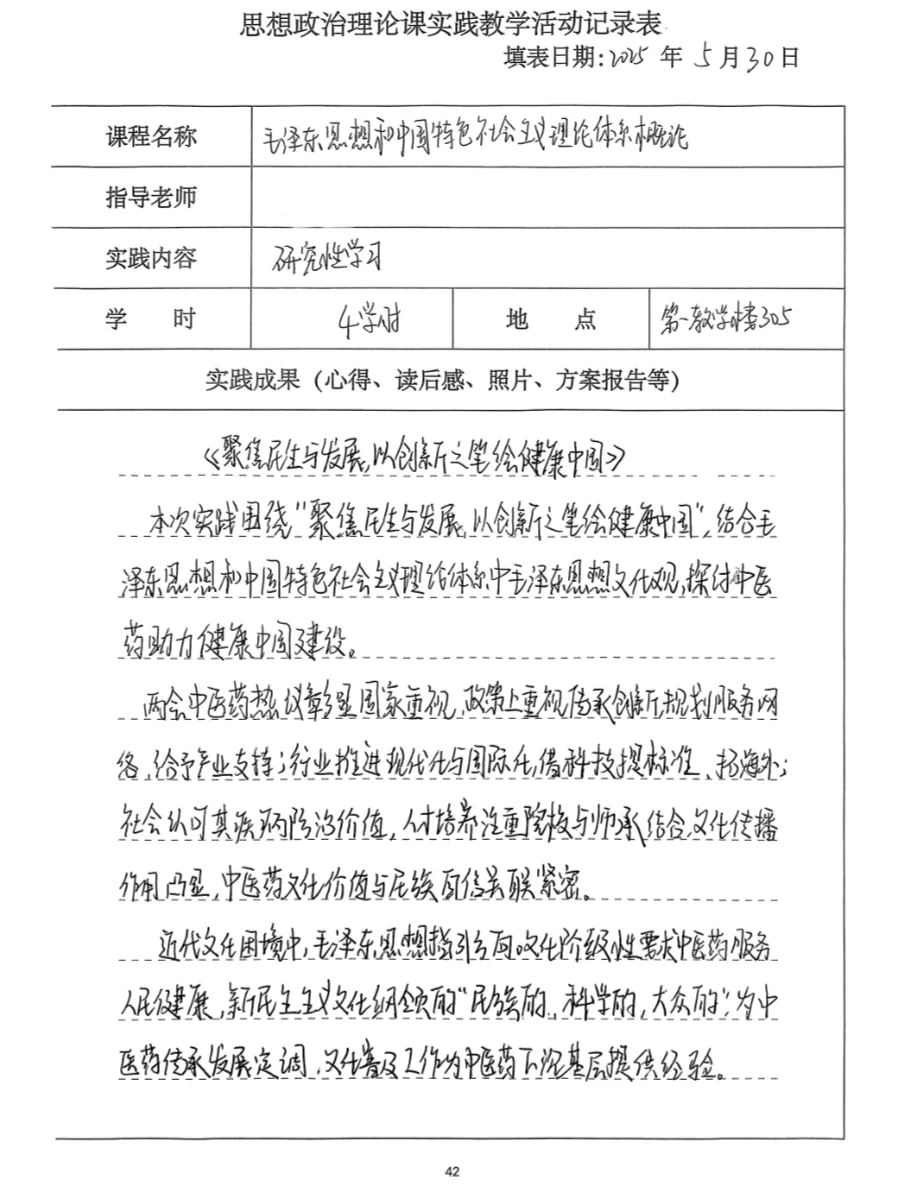 思想政治理论课实践教学活动记录表
填表日期:2025 年 5 月 30 日
课程名称 毛泽东思想和中国特色社会主义理论体系概论
指导老师
实践内容 研究性学习
学 时 4学时 地 点 第一教学楼305
实践成果（心得、读后感、照片、方案报告等）
《聚焦民生与发展,以创新之笔绘健康中国》
本次实践围绕"聚焦民生与发展,以创新之笔绘健康中国",结合毛
泽东思想和中国特色社会主义理论体系中毛泽东思想文化观,探讨中医
药助力健康中国建设。
两会中医药热议彰显国家重视,政策上重视传承创新,规划服务网
络、给予产业支持;行业推进现代化与国际化,借科技提标准、拓海外;
社会认可其疾病防治价值,人才培养注重院校与师承结合,文化传播
作用凸显,中医药文化价值与民族自信关联紧密。
近代文化困境中,毛泽东思想指引方向。文化阶级性要求中医药服务
人民健康,新民主主义文化纲领的"民族的,科学的,大众的",为中
医药传承发展定调,文化普及工作为中医药下沉基层提供经验。
42